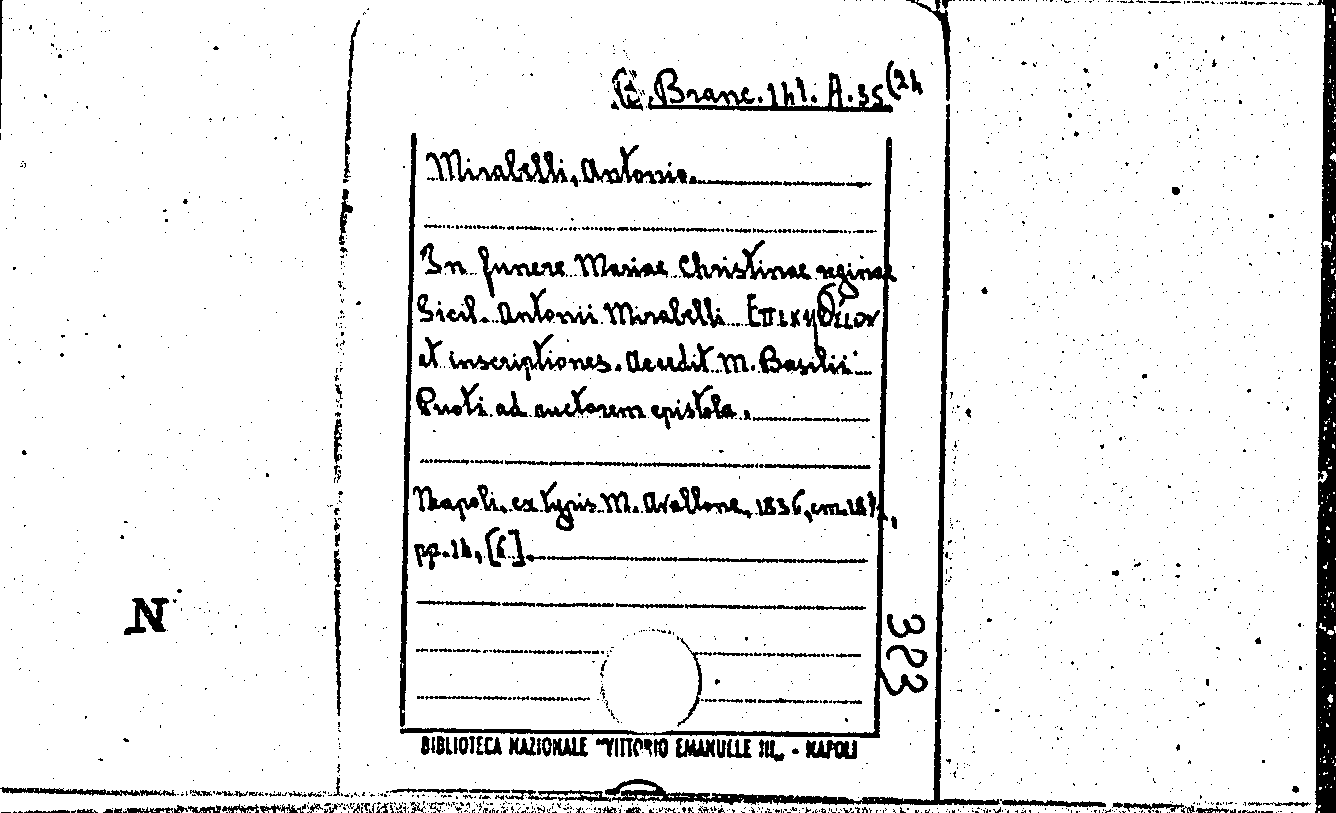 B. Branc. 141. A. 35(24
Mirabelli, Antonio.
In funere Mariae Christinae reginae
Sicil. Antonii Mirabelli Επικηδειον
et inscriptiones. Accedit M. Basilii
Puoti ad auctorem epistola.
Neapoli, ex typis M. Avallone, 1836, cm. 18½,
pp. 14, [6].
383
N
BIBLIOTECA NAZIONALE "VITTORIO EMANUELE III„ - NAPOLI